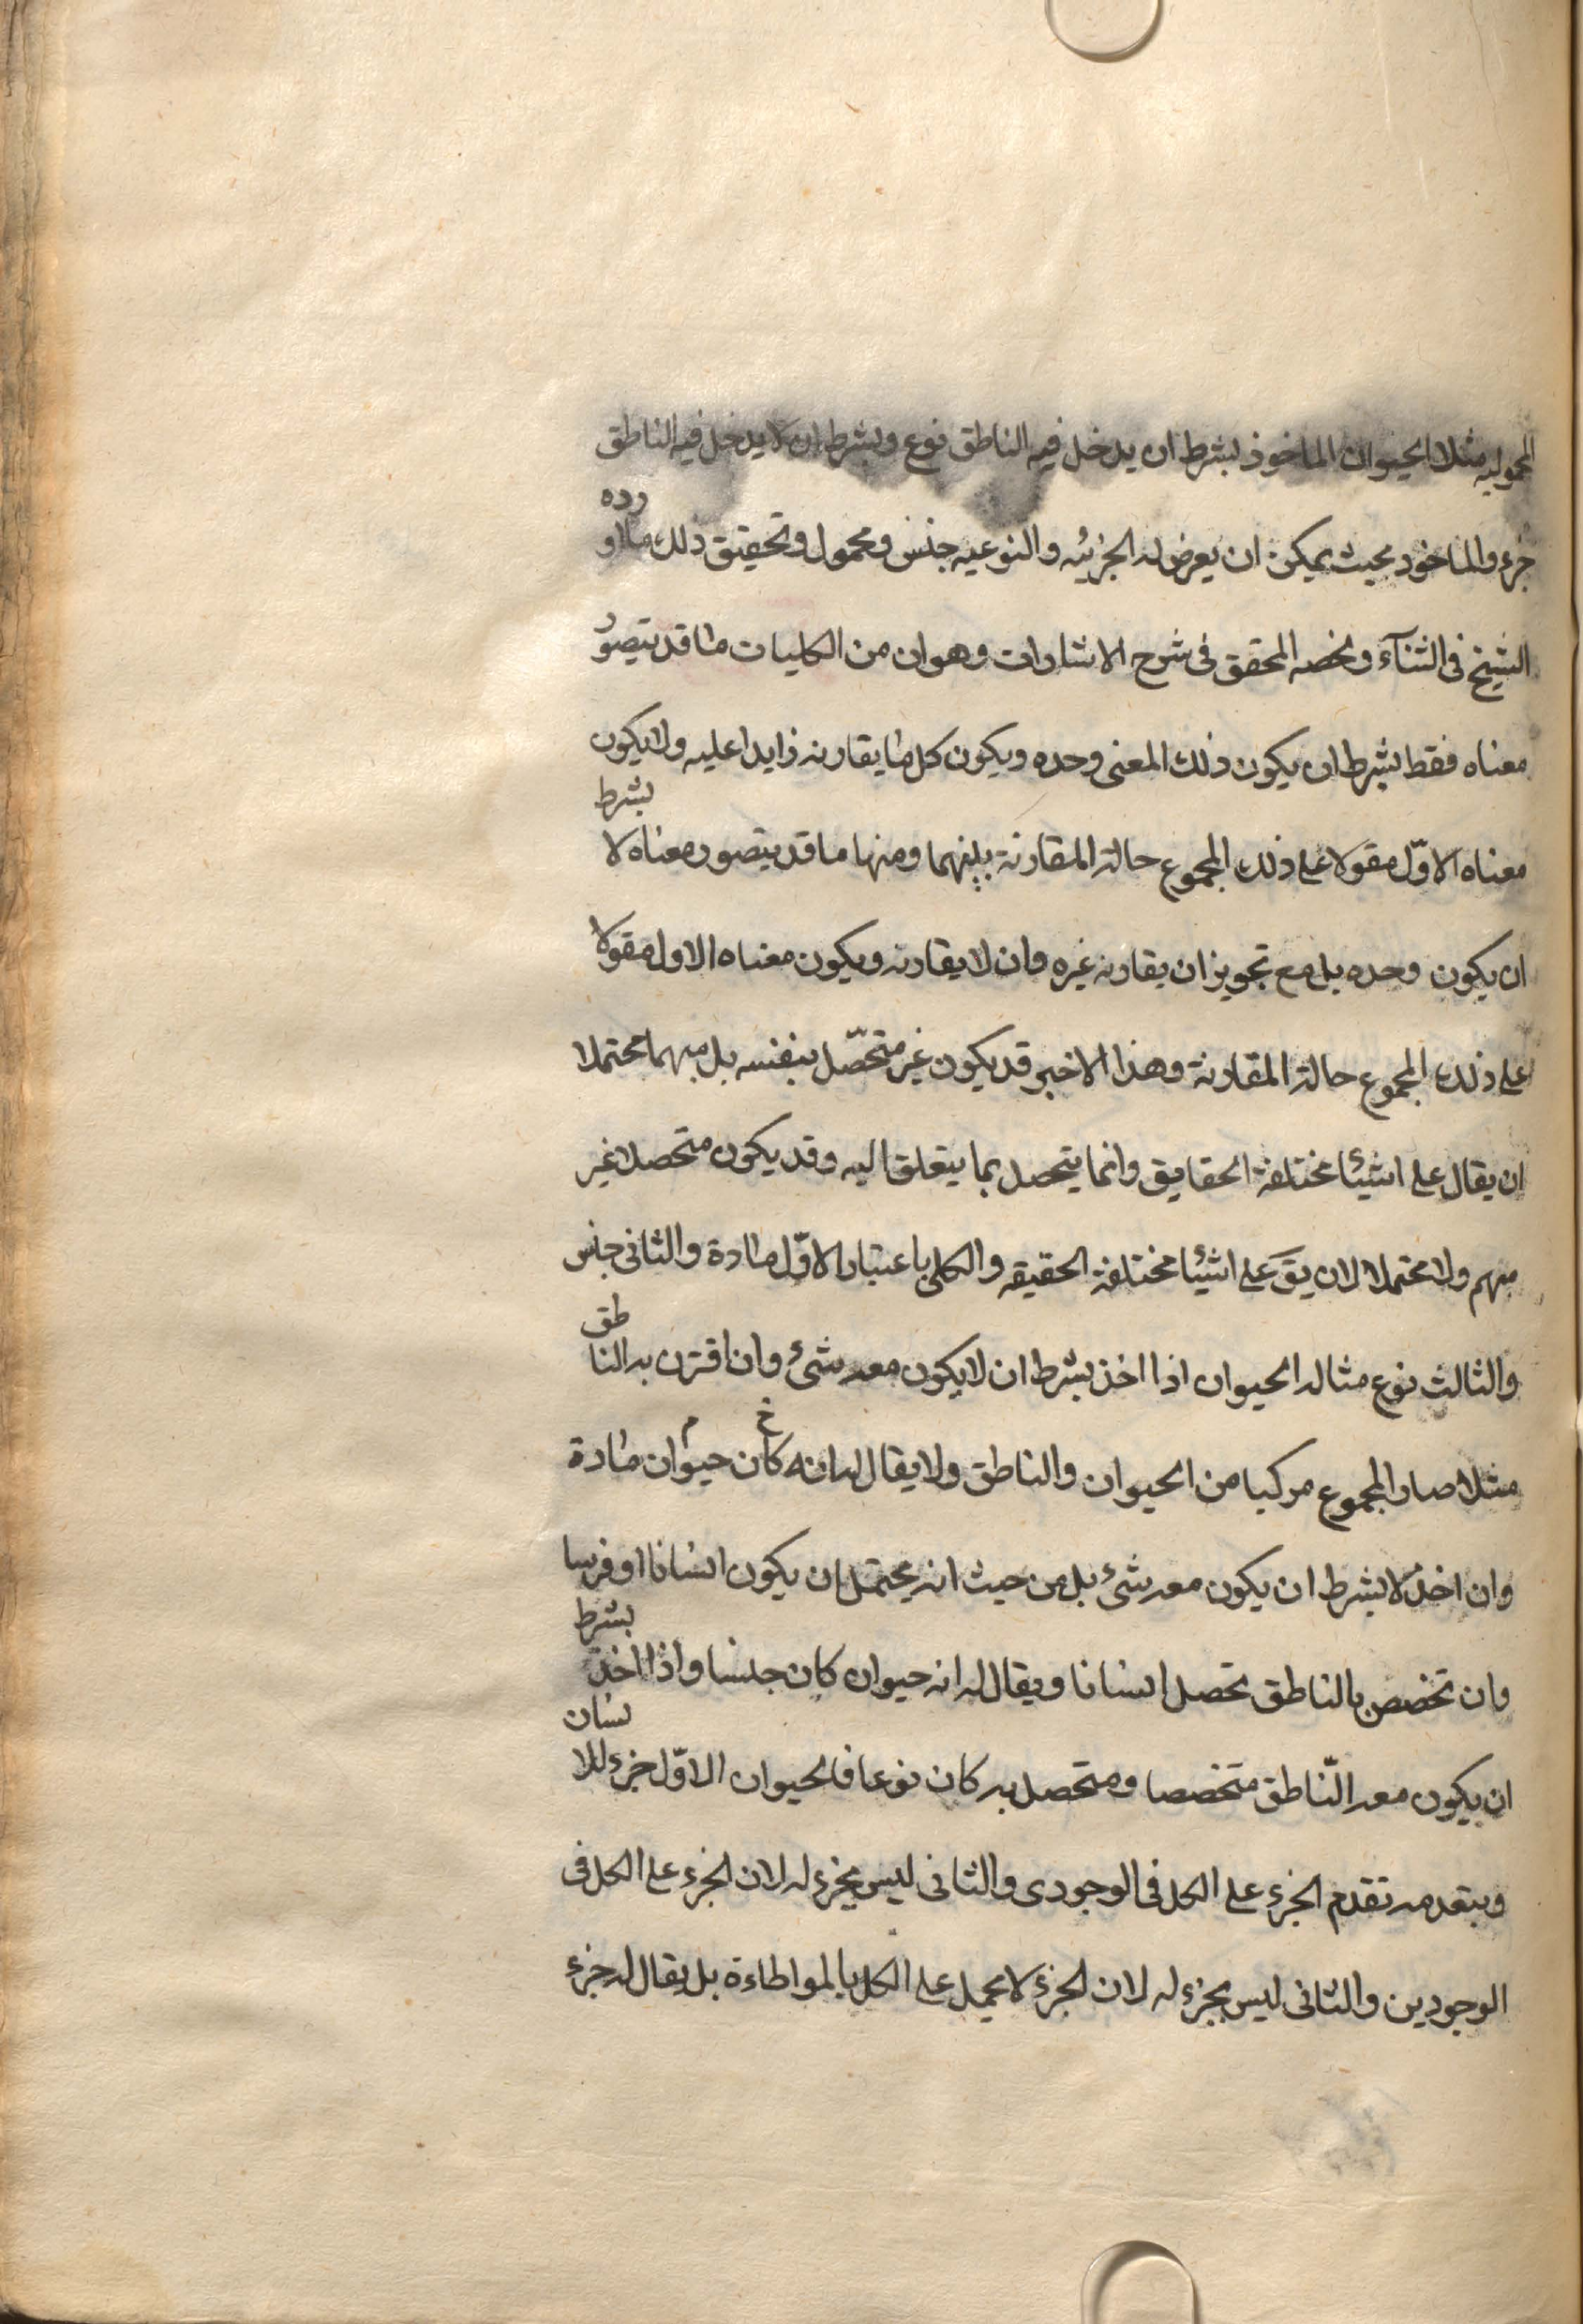 المحموليه مثلا الحيوان الماخوذ بشرط ان يدخل فيه الناطق نوع وبشرط ان لا يدخل فيه الناطق
جزء والماخود بحيث يمكن ان يعرض له الجزئيه والنوعيه جنس ومحمول وتحقيق ذلك ما اورده
الشيخ فى الشآء ولخصه المحقق فى شرح الاشارات وهو ان من الكليات ما قد يتصور
معناه فقط بشرط ان يكون ذلك المعنى وحده ويكون كل ما يقارنه زايدا عليه ولا يكون
معناه الاوّل مقولا على ذلك المجموع حالة المقارنة بينهما ومنها ما قد يتصور معناه لا بشرط
ان يكون وحده بل مع تجويز ان يقارنه غيره وان لا يقارنه ويكون معناه الاول مقولا
على ذلك المجموع حالة المقارنة وهذا الاخير قد يكون غير متحصّل بنفسه بل مبهما محتملا
ان يقال على اشيئا مختلفة الحقايق وانما يتحصل بما يتعلق اليه وقد يكون متحصلا غير
مبهم ولا محتملا لان يقَ على اشيئا مختلفة الحقيقه والكلى باعتبار الاوّل مادة والثانى جنس
والثالث نوع مثاله الحيوان اذا اخذ بشرط ان لا يكون معه شئ وان اقترن به الناطق
مثلا صار المجموع مركبا من الحيوان والناطق ولا يقال له انه كان حيوان مادة
وان اخذ لا بشرط ان يكون معه شئ بل من حيث انه يحتمل ان يكون انسانا او فرسا
وان تخصص بالناطق تحصل انسانا ويقال له انه حيوان كان جنسا واذا اخذ بشرط
ان يكون معه النّاطق متخصصا ومتحصل به كان نوعا فالحيوان الاوّل جزء للانسان
ويتقدمه تقدم الجزء على الكل فى الوجودى والثانى ليس بجزء له لان الجزء على الكل فى
الوجودين والثانى ليس بجزء له لان الجزء لا يحمل على الكل بالمواطاءة بل يقال له جزء